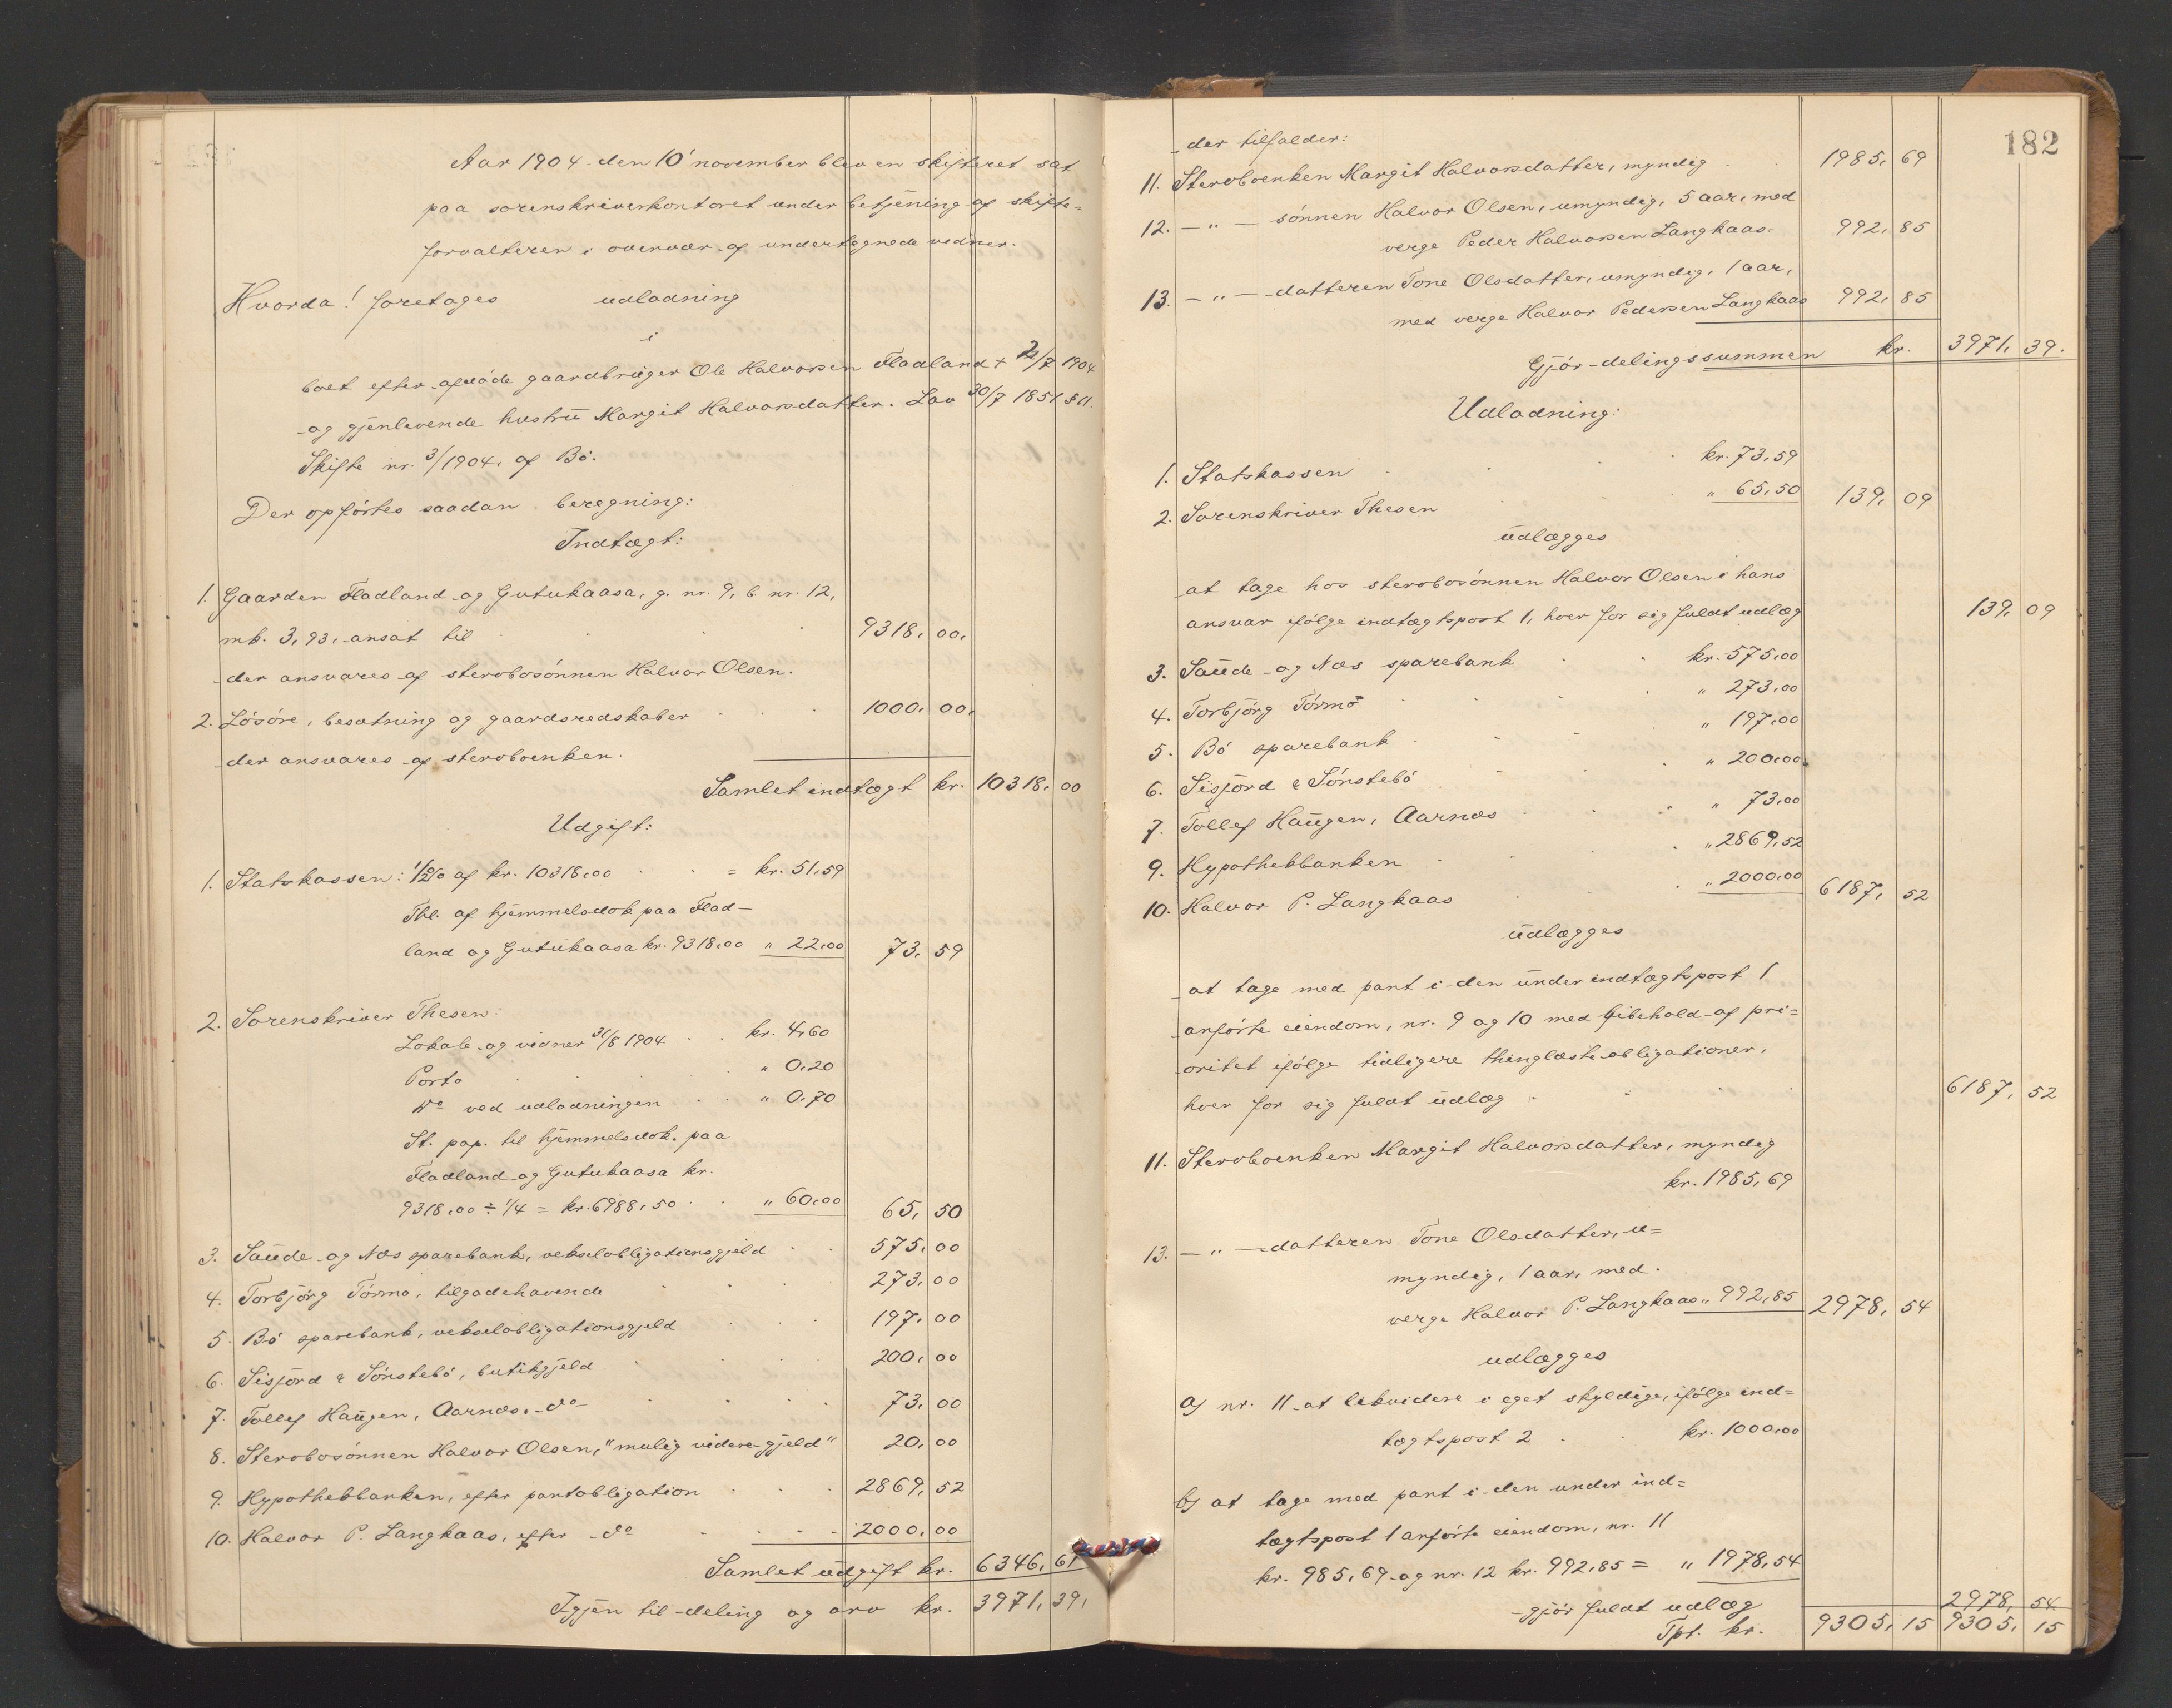 Aar 1904 den 10' november blev en skifteret sat
paa sorenskriverkontoret under betjening af skifte=
forvalteren i overvær af undertegnede vidner.
Hvorda! foretages udlodning
i
boet efter afdøde gaardbruger Ole Halvorsen Fladland + 2/7 1904
og gjenlevende hustru Margit Halvorsdatter. Lov 30/7 1851 § 11.
Skifte nr. 3/1904. af Bø.
Der opførtes saadan beregning:
Indtægt:
1. Gaarden Fladland og Gutukaasa, g. nr. 9, b. nr. 12,
mk. 3,93, ansat til 9318,00,
der ansvares af stervbosønnen Halvor Olsen.
2. Løsøre, besætning og gaardsredskaber 1000,00,
der ansvares af stervboenken.
Samlet indtægt kr. 10318,00
Udgift:
1. Statskassen: 1/2% af kr. 10318,00 = kr. 51,59
Thl. af hjemmelsdok paa Flad-
land og Gutukaasa kr. 9318,00 " 22,00 73,59
2. Sorenskriver Thesen:
Lokale og vidner 31/8 1904 kr. 4,60
Porto " 0,20
do ved udlodningen " 0,70
St. pap. til hjemmelsdok. paa
Fladland og Gutukaasa kr.
9318,00 ÷ 1/4 = kr. 6988,50 " 60,00 65,50
3. Saude og Nes sparebank, vekselobligationsgjeld 575,00
4. Torbjørg Tormo, tilgodehavende 273,00
5. Bø sparebank, vekselobligationsgjeld 197,00
6. Sisjord & Sønstebø, butikgjeld 200,00
7. Tollef Haugen, Aarnes. do 73,00
8. Stervbosønnen Halvor Olsen, "mulig videre gjeld" 20,00
9. Hypothekbanken, efter pantobligation 2869,52
10. Halvor P. Langkaas, efter do 2000,00
Samlet udgift kr. 6346,61
Igjen til deling og arv kr. 3971,39,
182
der tilfalder:
11. Stervboenken Margit Halvorsdatter, myndig 1985,69
12. — " — sønnen Halvor Olsen, umyndig, 5 aar, med
verge Peder Halvorsen Langkaas. 992,85
13. — " — datteren Tone Olsdatter, umyndig, 1 aar,
med verge Halvor Pedersen Langkaas 992,85
Gjør delingssummen kr. 3971,39.
Udlodning:
1. Statskassen kr. 73,59
2. Sorenskriver Thesen " 65,50 139,09
udlægges
at tage hos stervbosønnen Halvor Olsen i hans
ansvar ifølge indtægtspost 1, hver for sig fuldt udlæg 139,09
3. Saude og Nes sparebank kr. 575,00
4. Torbjørg Tormo " 273,00
5. Bø sparebank " 197,00
6. Sisjord & Sønstebø " 200,00
7. Tollef Haugen, Aarnes " 73,00
9. Hypothekbanken " 2869,52
10. Halvor P. Langkaas " 2000,00 6187,52
udlægges
at tage med pant i den under indtægtspost 1
anførte eiendom, nr. 9 og 10 med bibehold af pri=
oritet ifølge tidligere thinglæste obligationer,
hver for sig fuldt udlæg 6187,52
11. Stervboenken Margit Halvorsdatter, myndig
kr. 1985,69
13. — " — datteren Tone Olsdatter, u=
myndig, 1 aar, med
verge Halvor P. Langkaas " 992,85 2978,54
udlægges
a) nr. 11 at likvidere i eget skyldige, ifølge ind=
tægtspost 2 kr. 1000,00
b) at tage med pant i den under ind=
tægtspost 1 anførte eiendom, nr. 11
kr. 985,69 og nr. 12 kr. 992,85 = " 1978,54
gjør fuldt udlæg 2978,54
Tpt. kr. 9305,15 9305,15